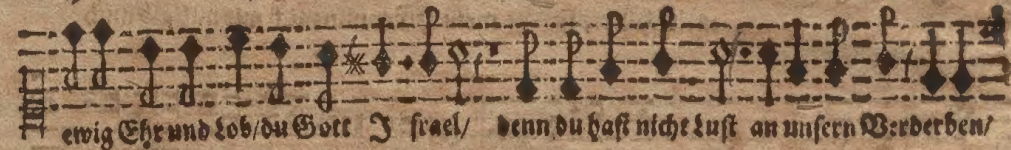 ewig Ehr und Lob/du Gott I srael/ denn du hast nicht Lust an unsern Verderben/